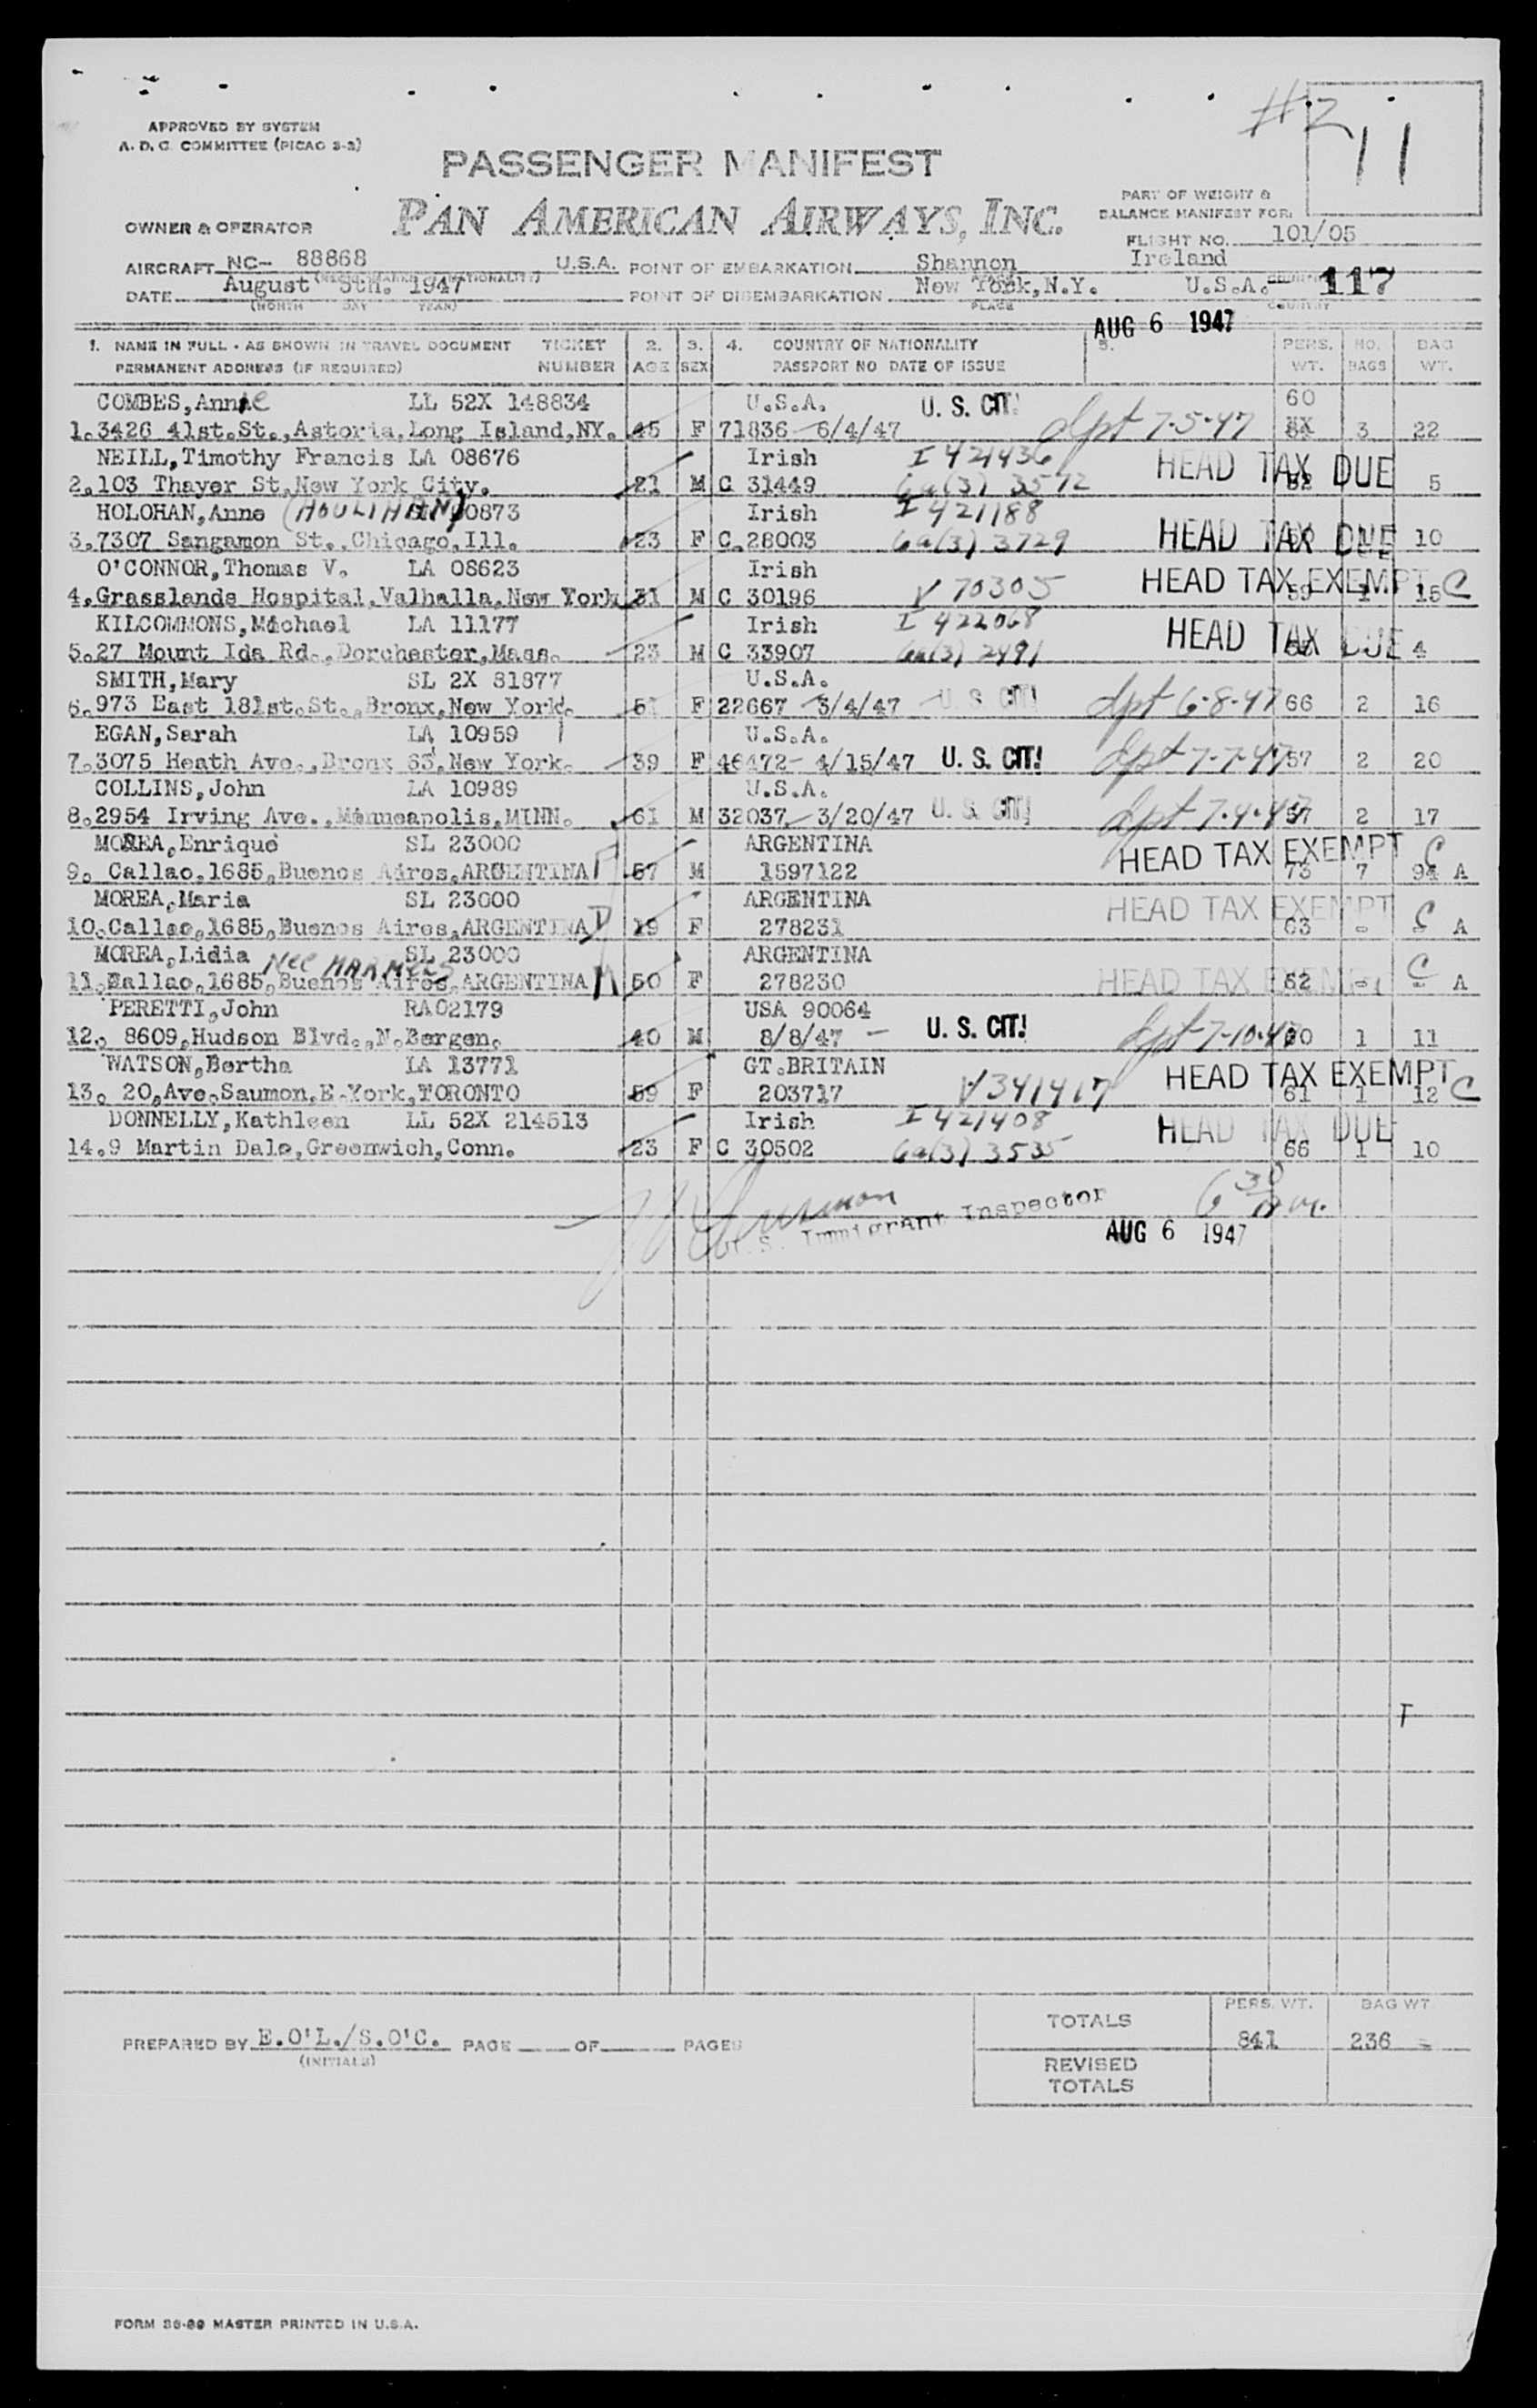 #2
11
APPROVED BY SYSTEM
A. D. C. COMMITTEE (PICAO 3-2)
PASSENGER MANIFEST
PAN AMERICAN AIRWAYS, INC.
PART OF WEIGHT &
BALANCE MANIFEST FOR:
OWNER & OPERATOR
FLIGHT NO. 101/05
AIRCRAFT NC- 88868 U.S.A. POINT OF EMBARKATION Shannon Ireland
DATE August 5th. 1947 POINT OF DISEMBARKATION New York, N.Y. U.S.A. 117
(MONTH DAY YEAR) PLACE COUNTRY
AUG 6 1947
1. NAME IN FULL - AS SHOWN IN TRAVEL DOCUMENT TICKET 2. 3. 4. COUNTRY OF NATIONALITY 5. PERS. NO. BAG
PERMANENT ADDRESS (IF REQUIRED) NUMBER AGE SEX PASSPORT NO DATE OF ISSUE WT. BAGS WT.
COMBES, Annie LL 52X 148834 U.S.A. U. S. CIT! 60
1. 3426 41st. St., Astoria, Long Island, NY. 45 F 71836 - 6/4/47 dpt 7-5-47 3 22
NEILL, Timothy Francis LA 08676 Irish I 421436 HEAD TAX DUE
2. 103 Thayer St, New York City. 21 M C 31449 6a(3) 3572 5
HOLOHAN, Anne (HOULIHAN) 0873 Irish I 421188 HEAD TAX DUE
3. 7307 Sangamon St., Chicago, Ill. 23 F C. 28003 6a(3) 3729 10
O'CONNOR, Thomas V. LA 08623 Irish HEAD TAX EXEMPT C
4. Grasslands Hospital, Valhalla, New York 31 M C 30196 V 70305 59 1 15
KILCOMMONS, Michael LA 11177 Irish I 422068 HEAD TAX DUE
5. 27 Mount Ida Rd., Dorchester, Mass. 23 M C 33907 6a(3) 2491 4
SMITH, Mary SL 2X 81877 U.S.A.
6. 973 East 181st. St., Bronx, New York. 51 F 22667 - 3/4/47 U S CIT! dpt 6-8-47 66 2 16
EGAN, Sarah LA 10959 U.S.A.
7. 3075 Heath Ave., Bronx 63, New York. 39 F 46472 - 4/15/47 U. S. CIT! dpt 7-7-47 57 2 20
COLLINS, John LA 10989 U.S.A.
8. 2954 Irving Ave., Minneapolis, MINN. 61 M 32037 - 3/20/47 U. S. CIT! dpt 7-4-47 57 2 17
MOREA, Enrique SL 23000 ARGENTINA HEAD TAX EXEMPT C
9. Callao, 1685, Buenos Aires, ARGENTINA F 57 M 1597122 73 7 94 A
MOREA, Maria SL 23000 ARGENTINA HEAD TAX EXEMPT C
10. Callao, 1685, Buenos Aires, ARGENTINA D 19 F 278231 63 - - A
MOREA, Lidia nee MARMELS SL 23000 ARGENTINA HEAD TAX EXEMPT C
11. Callao, 1685, Buenos Aires, ARGENTINA M 50 F 278230 52 - - A
PERETTI, John RA02179 USA 90064 U. S. CIT!
12. 8609, Hudson Blvd., N. Bergen. 40 M 8/8/47 - dpt 7-10-47 1 11
WATSON, Bertha LA 13771 GT. BRITAIN HEAD TAX EXEMPT
13. 20, Ave. Saumon, E. York, TORONTO 59 F 203717 V 341417 61 1 12 C
DONNELLY, Kathleen LL 52X 214513 Irish I 421408 HEAD TAX DUE
14. 9 Martin Dale, Greenwich, Conn. 23 F C 30502 6a(3) 3535 66 1 10
6 30 a m.
U. S. Immigrant Inspector AUG 6 1947
T
PREPARED BY E.O'L./S.O'C. PAGE OF PAGES
(INITIALS)
PERS. WT. BAG WT
TOTALS 841 236
REVISED
TOTALS
FORM 36-99 MASTER PRINTED IN U.S.A.